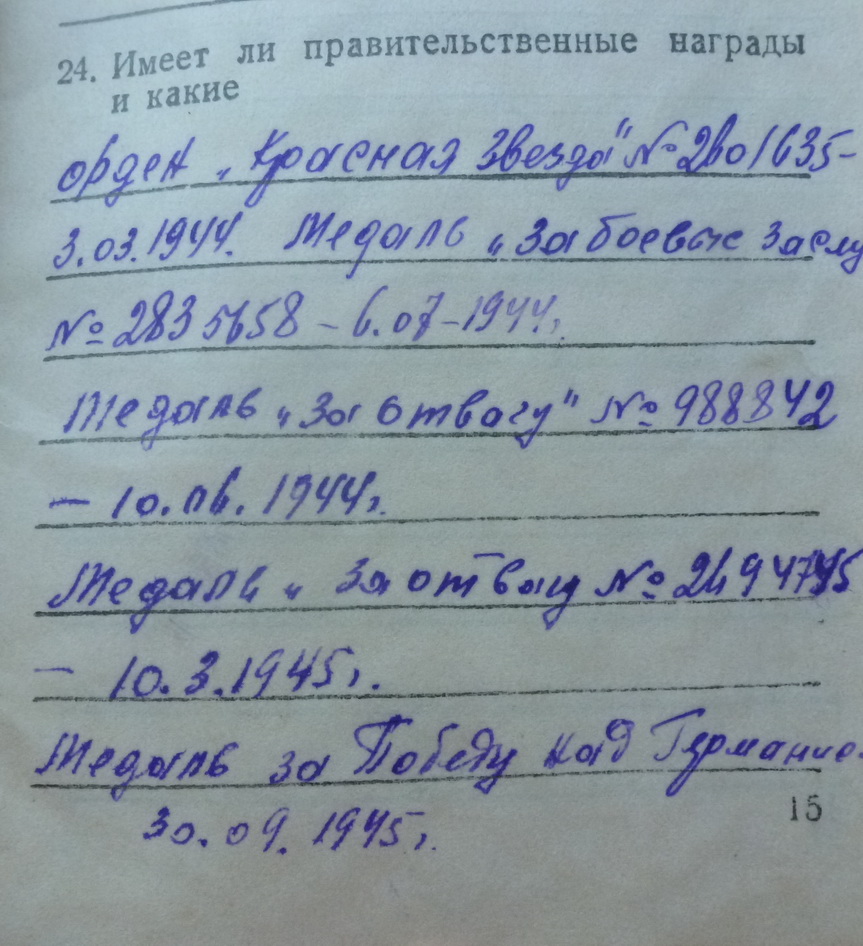 24. Имеет ли правительственные награды
и какие
орден „Красная Звезда" № 2601635-
3.03.1944. Медаль „За боевые заслу
№ 2835658 - 6.07-1944г.
Медаль „За отвагу" № 988842
- 10.1944г.
Медаль „За отвагу №
- 10.3.1945г.
Медаль за Победу над Германие
30.09.1945г.
15